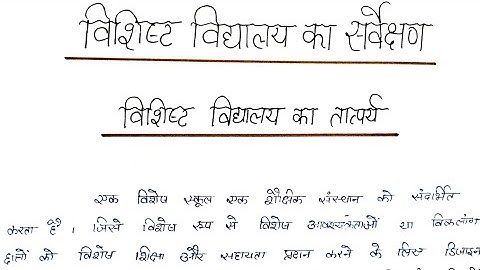 विशिष्ट विद्यालय का सर्वेक्षण
विशिष्ट विद्यालय का तात्पर्य
एक विशेष स्कूल एक शैक्षिक संस्थान को संदर्भित
करता है। जिसे विशेष रूप से विशेष आवश्यकताओं या विकलांग
छात्रों को विशेष शिक्षा और सहायता प्रदान करने के लिए डिजाइन